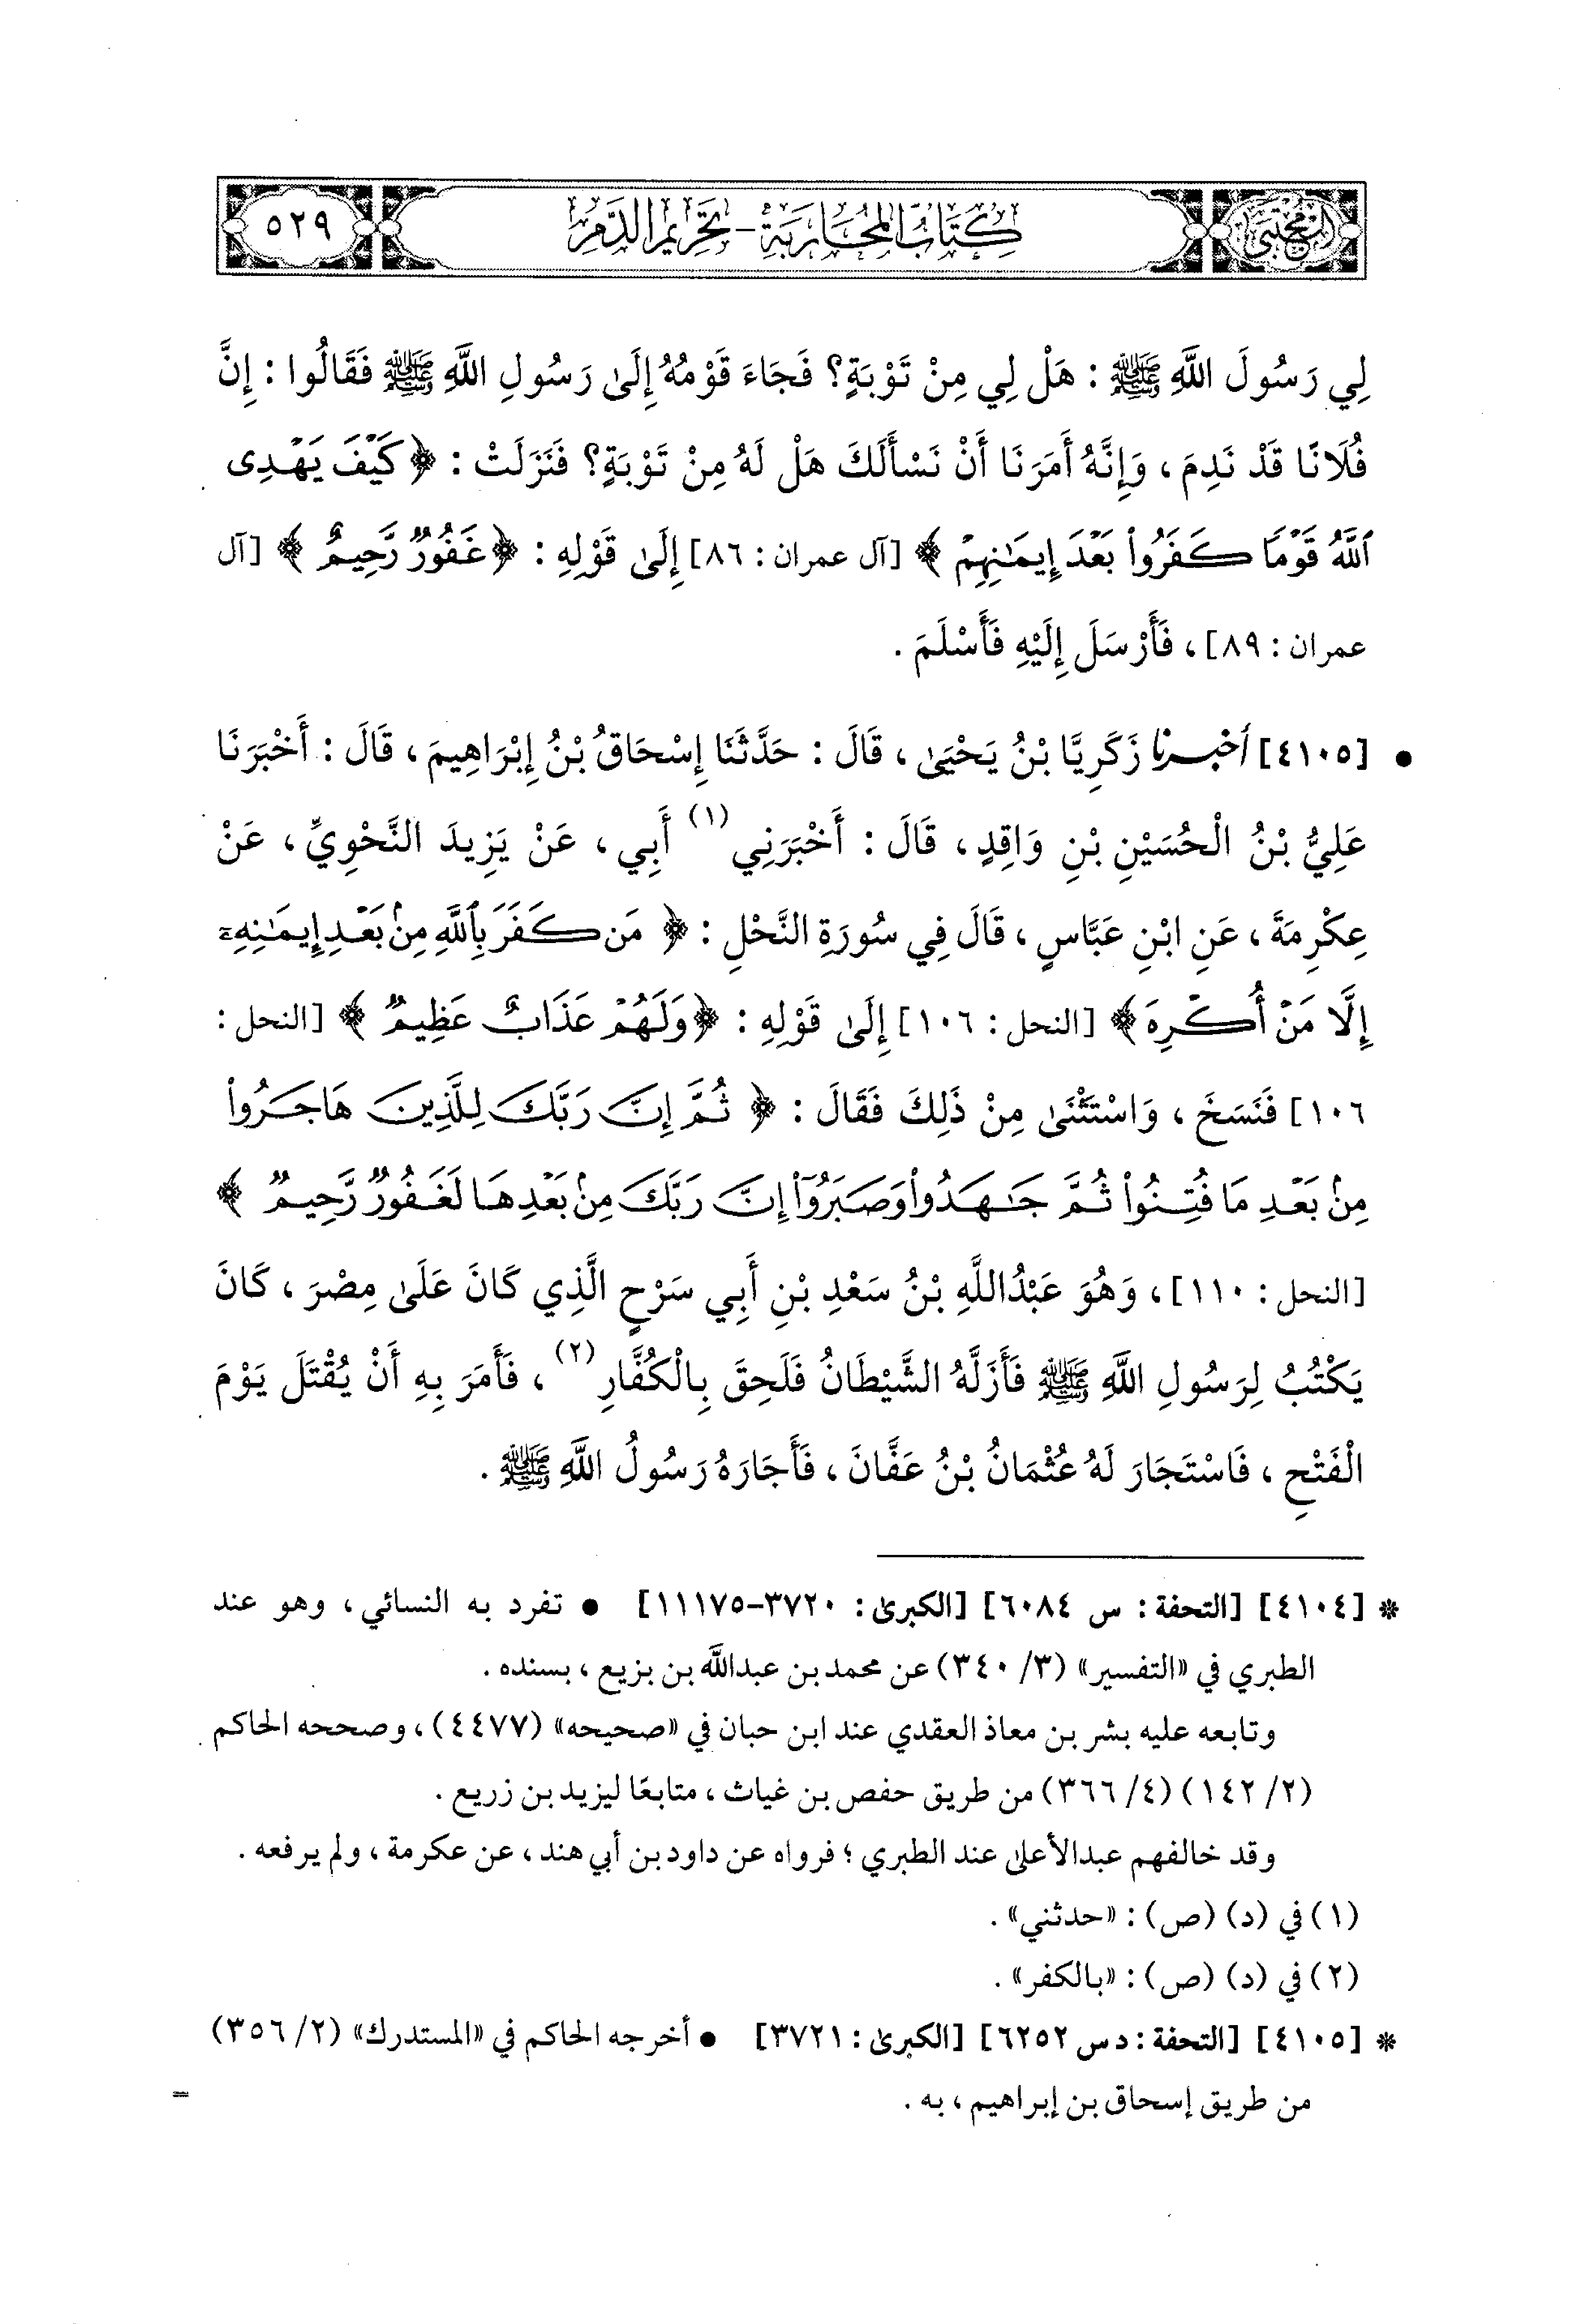 المجتبى
كتاب المحاربة - تحريم الدم
٥٢٩
لِي رَسُولَ اللَّهِ ﷺ : هَلْ لِي مِنْ تَوْبَةٍ؟ فَجَاءَ قَوْمُهُ إِلَىٰ رَسُولِ اللَّهِ ﷺ فَقَالُوا : إِنَّ
فُلَانًا قَدْ نَدِمَ ، وَإِنَّهُ أَمَرَنَا أَنْ نَسْأَلَكَ هَلْ لَهُ مِنْ تَوْبَةٍ؟ فَنَزَلَتْ : ﴿ كَيْفَ يَهْدِى
ٱللَّهُ قَوْمًا كَفَرُوا۟ بَعْدَ إِيمَـٰنِهِمْ ﴾ [آل عمران : ٨٦] إِلَىٰ قَوْلِهِ : ﴿غَفُورٌ رَّحِيمٌ ﴾ [آل
عمران : ٨٩] ، فَأَرْسَلَ إِلَيْهِ فَأَسْلَمَ .
• [٤١٠٥] أخبرنا زَكَرِيَّا بْنُ يَحْيَىٰ ، قَالَ : حَدَّثَنَا إِسْحَاقُ بْنُ إِبْرَاهِيمَ ، قَالَ : أَخْبَرَنَا
عَلِيُّ بْنُ الْحُسَيْنِ بْنِ وَاقِدٍ ، قَالَ : أَخْبَرَنِي (١) أَبِي ، عَنْ يَزِيدَ النَّحْوِيِّ ، عَنْ
عِكْرِمَةَ ، عَنِ ابْنِ عَبَّاسٍ ، قَالَ فِي سُورَةِ النَّحْلِ : ﴿ مَن كَفَرَ بِٱللَّهِ مِنۢ بَعْدِ إِيمَـٰنِهِۦٓ
إِلَّا مَنْ أُكْرِهَ ﴾ [النحل : ١٠٦] إِلَىٰ قَوْلِهِ : ﴿وَلَهُمْ عَذَابٌ عَظِيمٌ ﴾ [النحل :
١٠٦] فَنَسَخَ ، وَاسْتَثْنَىٰ مِنْ ذَلِكَ فَقَالَ : ﴿ ثُمَّ إِنَّ رَبَّكَ لِلَّذِينَ هَاجَرُوا۟
مِنۢ بَعْدِ مَا فُتِنُوا۟ ثُمَّ جَـٰهَدُوا۟ وَصَبَرُوٓا۟ إِنَّ رَبَّكَ مِنۢ بَعْدِهَا لَغَفُورٌ رَّحِيمٌ ﴾
[النحل : ١١٠] ، وَهُوَ عَبْدُاللَّهِ بْنُ سَعْدِ بْنِ أَبِي سَرْحٍ الَّذِي كَانَ عَلَىٰ مِصْرَ ، كَانَ
يَكْتُبُ لِرَسُولِ اللَّهِ ﷺ فَأَزَلَّهُ الشَّيْطَانُ فَلَحِقَ بِالْكُفَّارِ (٢) ، فَأَمَرَ بِهِ أَنْ يُقْتَلَ يَوْمَ
الْفَتْحِ ، فَاسْتَجَارَ لَهُ عُثْمَانُ بْنُ عَفَّانَ ، فَأَجَارَهُ رَسُولُ اللَّهِ ﷺ .
* [٤١٠٤] [التحفة : س ٦٠٨٤] [الكبرىٰ : ٣٧٢٠-١١١٧٥] • تفرد به النسائي ، وهو عند
الطبري في «التفسير» (٣/ ٣٤٠) عن محمد بن عبدالله بن بزيع ، بسنده .
وتابعه عليه بشر بن معاذ العقدي عند ابن حبان في «صحيحه» (٤٤٧٧) ، وصححه الحاكم
(٢/ ١٤٢) (٤/ ٣٦٦) من طريق حفص بن غياث ، متابعًا ليزيد بن زريع .
وقد خالفهم عبدالأعلى عند الطبري ؛ فرواه عن داود بن أبي هند ، عن عكرمة ، ولم يرفعه .
(١) في (د) (ص) : «حدثني» .
(٢) في (د) (ص) : «بالكفر» .
* [٤١٠٥] [التحفة : د س ٦٢٥٢] [الكبرىٰ : ٣٧٢١] • أخرجه الحاكم في «المستدرك» (٢/ ٣٥٦)
من طريق إسحاق بن إبراهيم ، به .
=